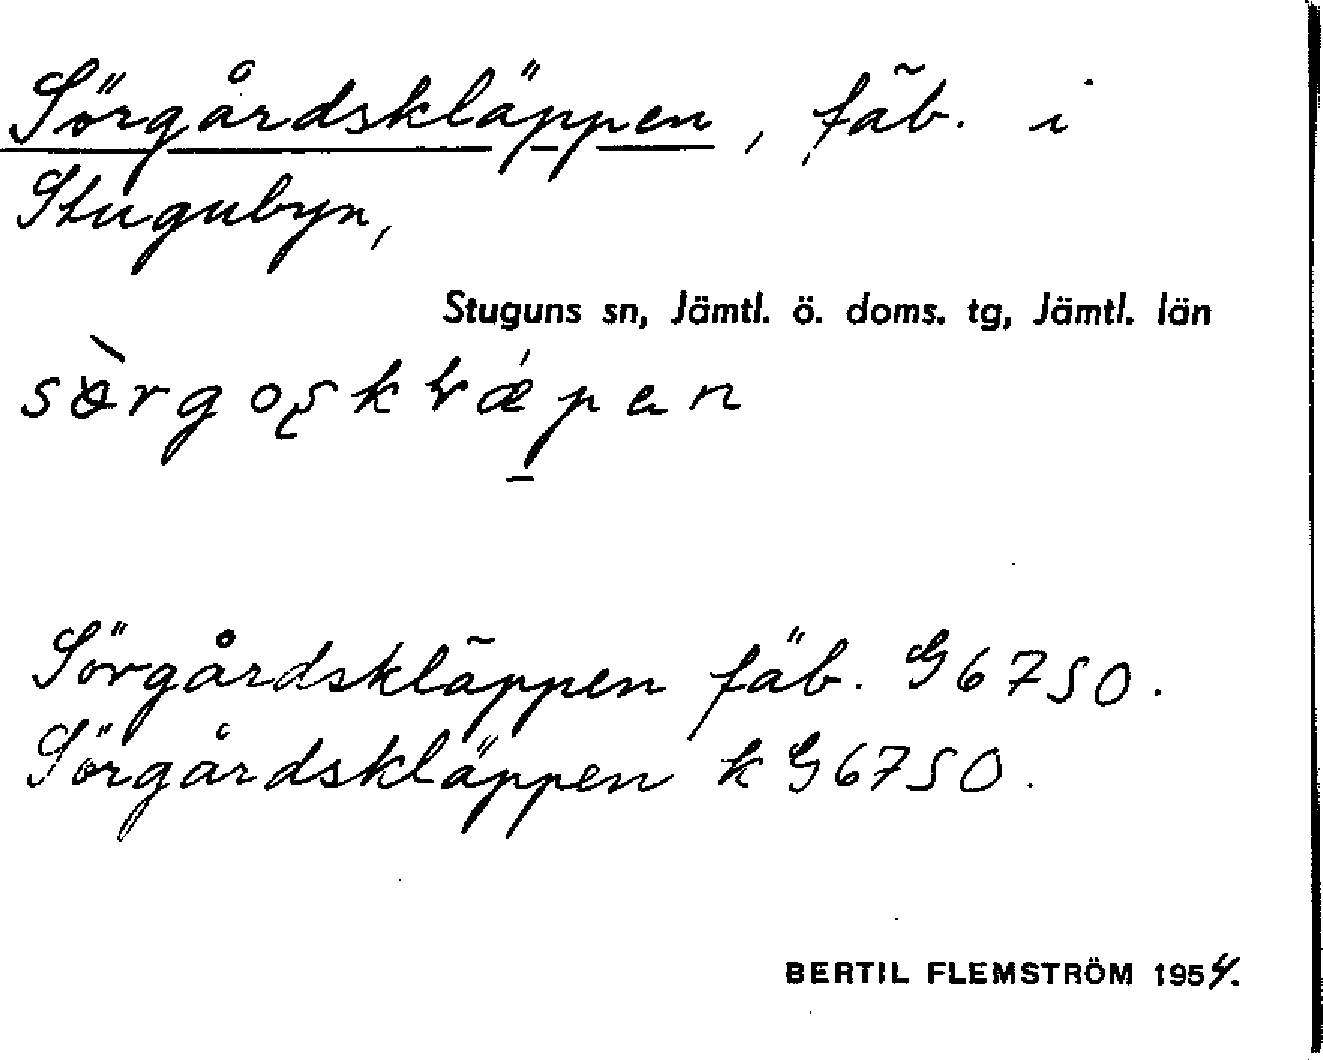 Sörgårdskläppen, fäb. i
Stugubyn,
Stuguns sn, Jämtl. ö. doms. tg, Jämtl. län
Sörgårdskläppen fäb. G6750.
Sörgårdskläppen k G6750.
BERTIL FLEMSTRÖM 1954.